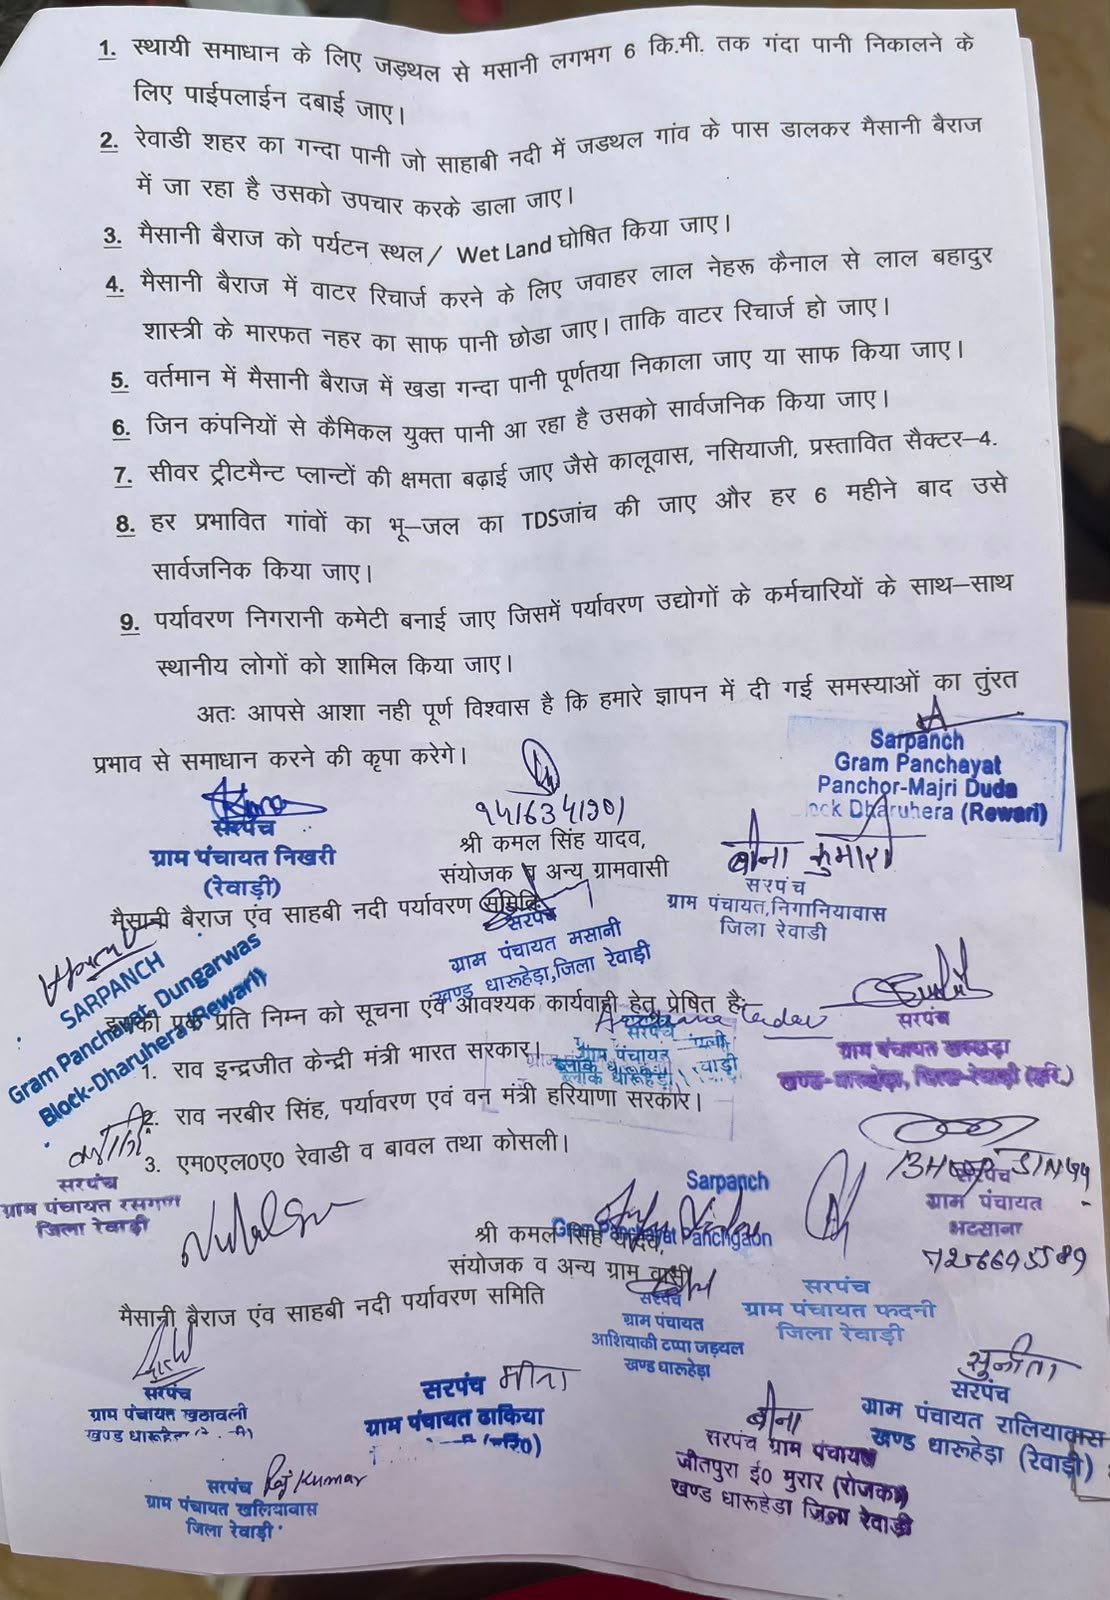 1. स्थायी समाधान के लिए जड़थल से मसानी लगभग 6 कि.मी. तक गंदा पानी निकालने के
लिए पाईपलाईन दबाई जाए।
2. रेवाडी शहर का गन्दा पानी जो साहाबी नदी में जडथल गांव के पास डालकर मैसानी बैराज
में जा रहा है उसको उपचार करके डाला जाए।
3. मैसानी बैराज को पर्यटन स्थल/ Wet Land घोषित किया जाए।
4. मैसानी बैराज में वाटर रिचार्ज करने के लिए जवाहर लाल नेहरू कैनाल से लाल बहादुर
शास्त्री के मारफत नहर का साफ पानी छोडा जाए। ताकि वाटर रिचार्ज हो जाए।
5. वर्तमान में मैसानी बैराज में खडा गन्दा पानी पूर्णतया निकाला जाए या साफ किया जाए।
6. जिन कंपनियों से कैमिकल युक्त पानी आ रहा है उसको सार्वजनिक किया जाए।
7. सीवर ट्रीटमैन्ट प्लान्टों की क्षमता बढ़ाई जाए जैसे कालूवास, नसियाजी, प्रस्तावित सैक्टर–4.
8. हर प्रभावित गांवों का भू–जल का TDSजांच की जाए और हर 6 महीने बाद उसे
सार्वजनिक किया जाए।
9. पर्यावरण निगरानी कमेटी बनाई जाए जिसमें पर्यावरण उद्योगों के कर्मचारियों के साथ–साथ
स्थानीय लोगों को शामिल किया जाए।
अतः आपसे आशा नही पूर्ण विश्वास है कि हमारे ज्ञापन में दी गई समस्याओं का तुंरत
प्रभाव से समाधान करने की कृपा करेगे।
Sarpanch
Gram Panchayat
Panchor-Majri Duda
Block Dharuhera (Rewari)
सरपंच
ग्राम पंचायत निखरी
(रेवाड़ी)
श्री कमल सिंह यादव,
संयोजक व अन्य ग्रामवासी
मैसानी बैराज एंव साहबी नदी पर्यावरण समिति
बीना कुमारी
सरपंच
ग्राम पंचायत,निगानियावास
जिला रेवाडी
सरपंच
ग्राम पंचायत मसानी
खण्ड धारूहेड़ा,जिला रेवाड़ी
SARPANCH
Gram Panchayat, Dungarwas
Block-Dharuhera (Rewari)
इसकी एक प्रति निम्न को सूचना एवं आवश्यक कार्यवाही हेतु प्रेषित हैः–
1. राव इन्द्रजीत केन्द्री मंत्री भारत सरकार।
2. राव नरबीर सिंह, पर्यावरण एवं वन मंत्री हरियाणा सरकार।
3. एम0एल0ए0 रेवाडी व बावल तथा कोसली।
सरपंच
ग्राम पंचायत
सरपंच
ग्राम पंचायत
खण्ड-धारूहेड़ा, जिला-रेवाड़ी (हरि.)
सरपंच
ग्राम पंचायत रसगण
जिला रेवाड़ी
Sarpanch
Gram Panchayat Panchgaon
सरपंच
ग्राम पंचायत
भटसाना
श्री कमल सिंह यादव,
संयोजक व अन्य ग्राम वासी
मैसानी बैराज एंव साहबी नदी पर्यावरण समिति
सरपंच
ग्राम पंचायत
आशियाकी टप्पा जड़थल
खण्ड धारूहेड़ा
सरपंच
ग्राम पंचायत फदनी
जिला रेवाड़ी
सरपंच
ग्राम पंचायत खठावली
खण्ड धारूहेड़ा
सरपंच मीना
ग्राम पंचायत ढाकिया
सुनीता
सरपंच
ग्राम पंचायत रालियावास
खण्ड धारूहेड़ा (रेवाड़ी)
बीना
सरपंच ग्राम पंचायत
जीतपुरा ई0 मुरार (रोजका)
खण्ड धारूहेडा जिला रेवाड़ी
सरपंच Raj Kumar
ग्राम पंचायत खलियावास
जिला रेवाड़ी